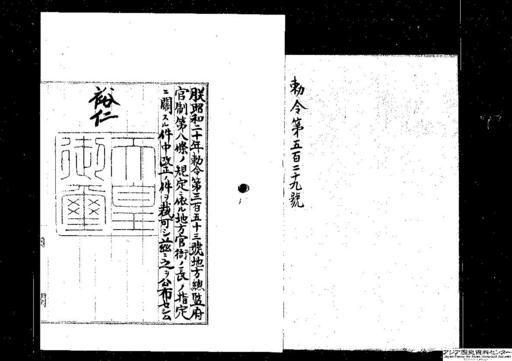 勅令第五百二十九號
朕昭和二十年勅令第三百五十三號地方總監府
官制第八條ノ規定ニ依ル地方官衙ノ長ノ指定
ニ關スル件中改正ノ件ヲ裁可シ茲ニ之ヲ公布セシム
裕仁
天皇
御璽
アジア歴史資料センター